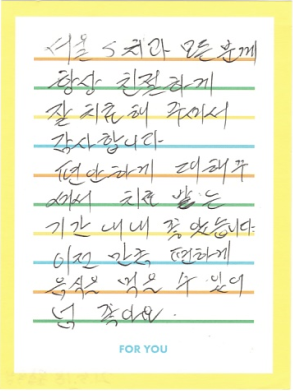 서울 S 치과 모든 분께
항상 친절하게
잘 치료해 주셔서
감사합니다
편안하게 대해 주
셔서 치료 받는
기간 내내 좋았습니다
이전 만큼 편하게
음식을 먹을 수 있어
넘 좋아요.
FOR YOU